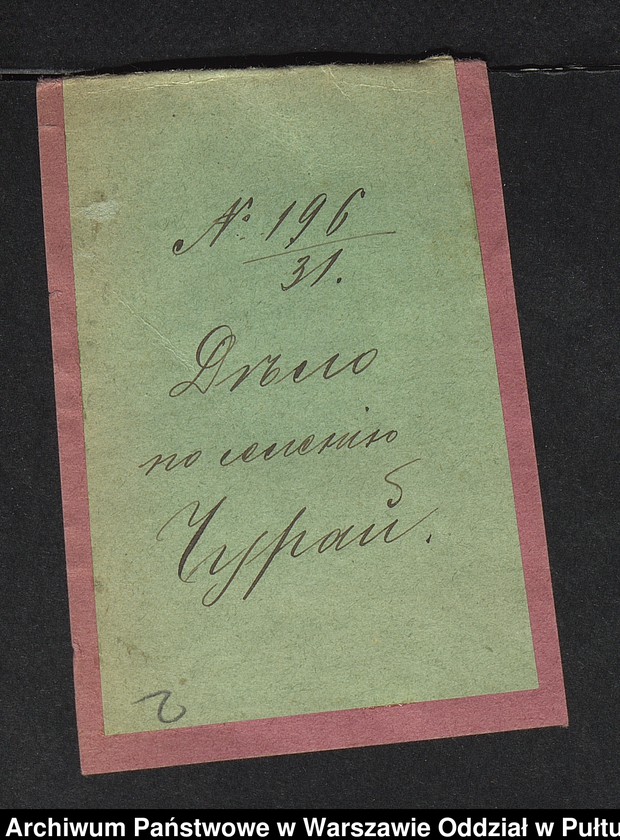 № 196
31.
Дѣло
по селенію
Чурай.
2
Archiwum Państwowe w Warszawie Oddział w Pułtu